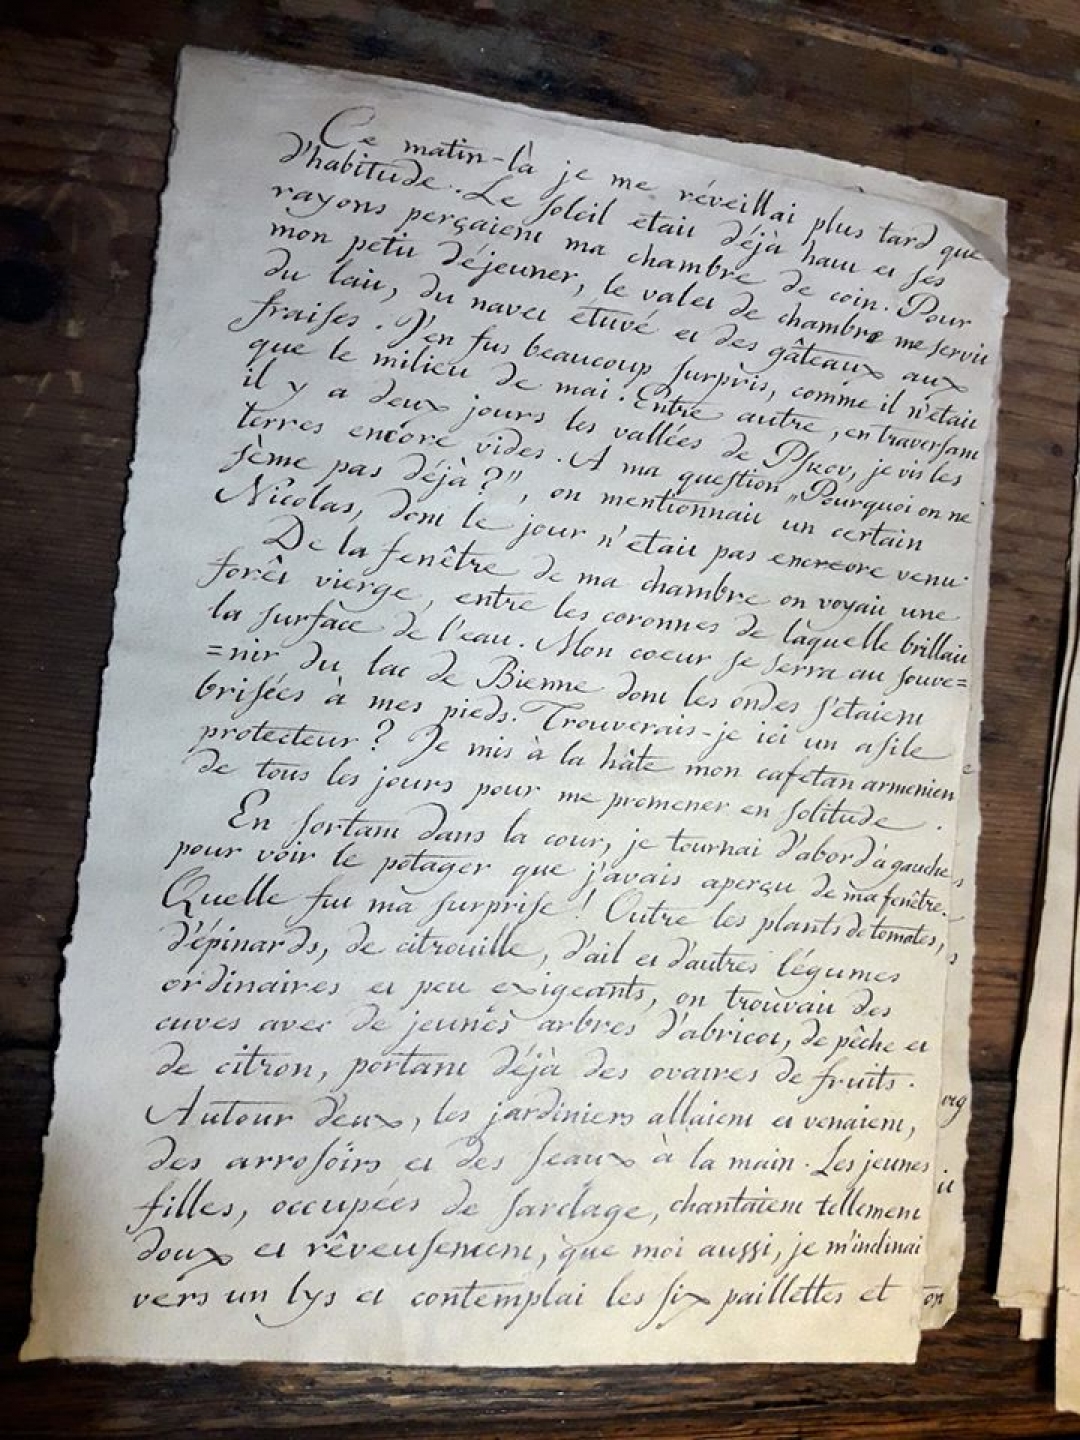 Ce matin-là je me réveillai plus tard que
d'habitude. Le soleil etait déjà haut et ses
rayons perçaient ma chambre de coin. Pour
mon petit déjeuner, le valet de chambre me servit
du lait, du navet étuvé et des gâteaux aux
fraises. J'en fus beaucoup surpris, comme il n'etait
que le milieu de mai. Entre autre, en traversant
il y a deux jours les vallées de Pskov, je vis les
terres encore vides. A ma question „Pourquoi on ne
sème pas déjà?", on mentionnait un certain
Nicolas, dont le jour n'etait pas encreore venu.
De la fenêtre de ma chambre on voyait une
forêt vierge, entre les coronnes de laquelle brillait
la surface de l'eau. Mon coeur se serra au souve=
=nir du lac de Bienne dont les ondes s'etaient
brisées à mes pieds. Trouverais-je ici un asile
protecteur? Je mis à la hâte mon cafetan armenien
de tous les jours pour me promener en solitude.
En sortant dans la cour, je tournai d'abord à gauche
pour voir le potager que j'avais aperçu de ma fenêtre.
Quelle fut ma surprise! Outre les plants de tomates,
d'épinards, de citrouille, d'ail et d'autres légumes
ordinaires et peu exigeants, on trouvait des
cuves avec de jeunes arbres d'abricot, de pêche et
de citron, portant déjà des ovaires de fruits.
Autour d'eux, les jardiniers allaient et venaient,
des arrosoirs et des seaux à la main. Les jeunes
filles, occupées de sarclage, chantaient tellement
doux et rêveusement, que moi aussi, je m'inclinai
vers un lys et contemplai les six paillettes et